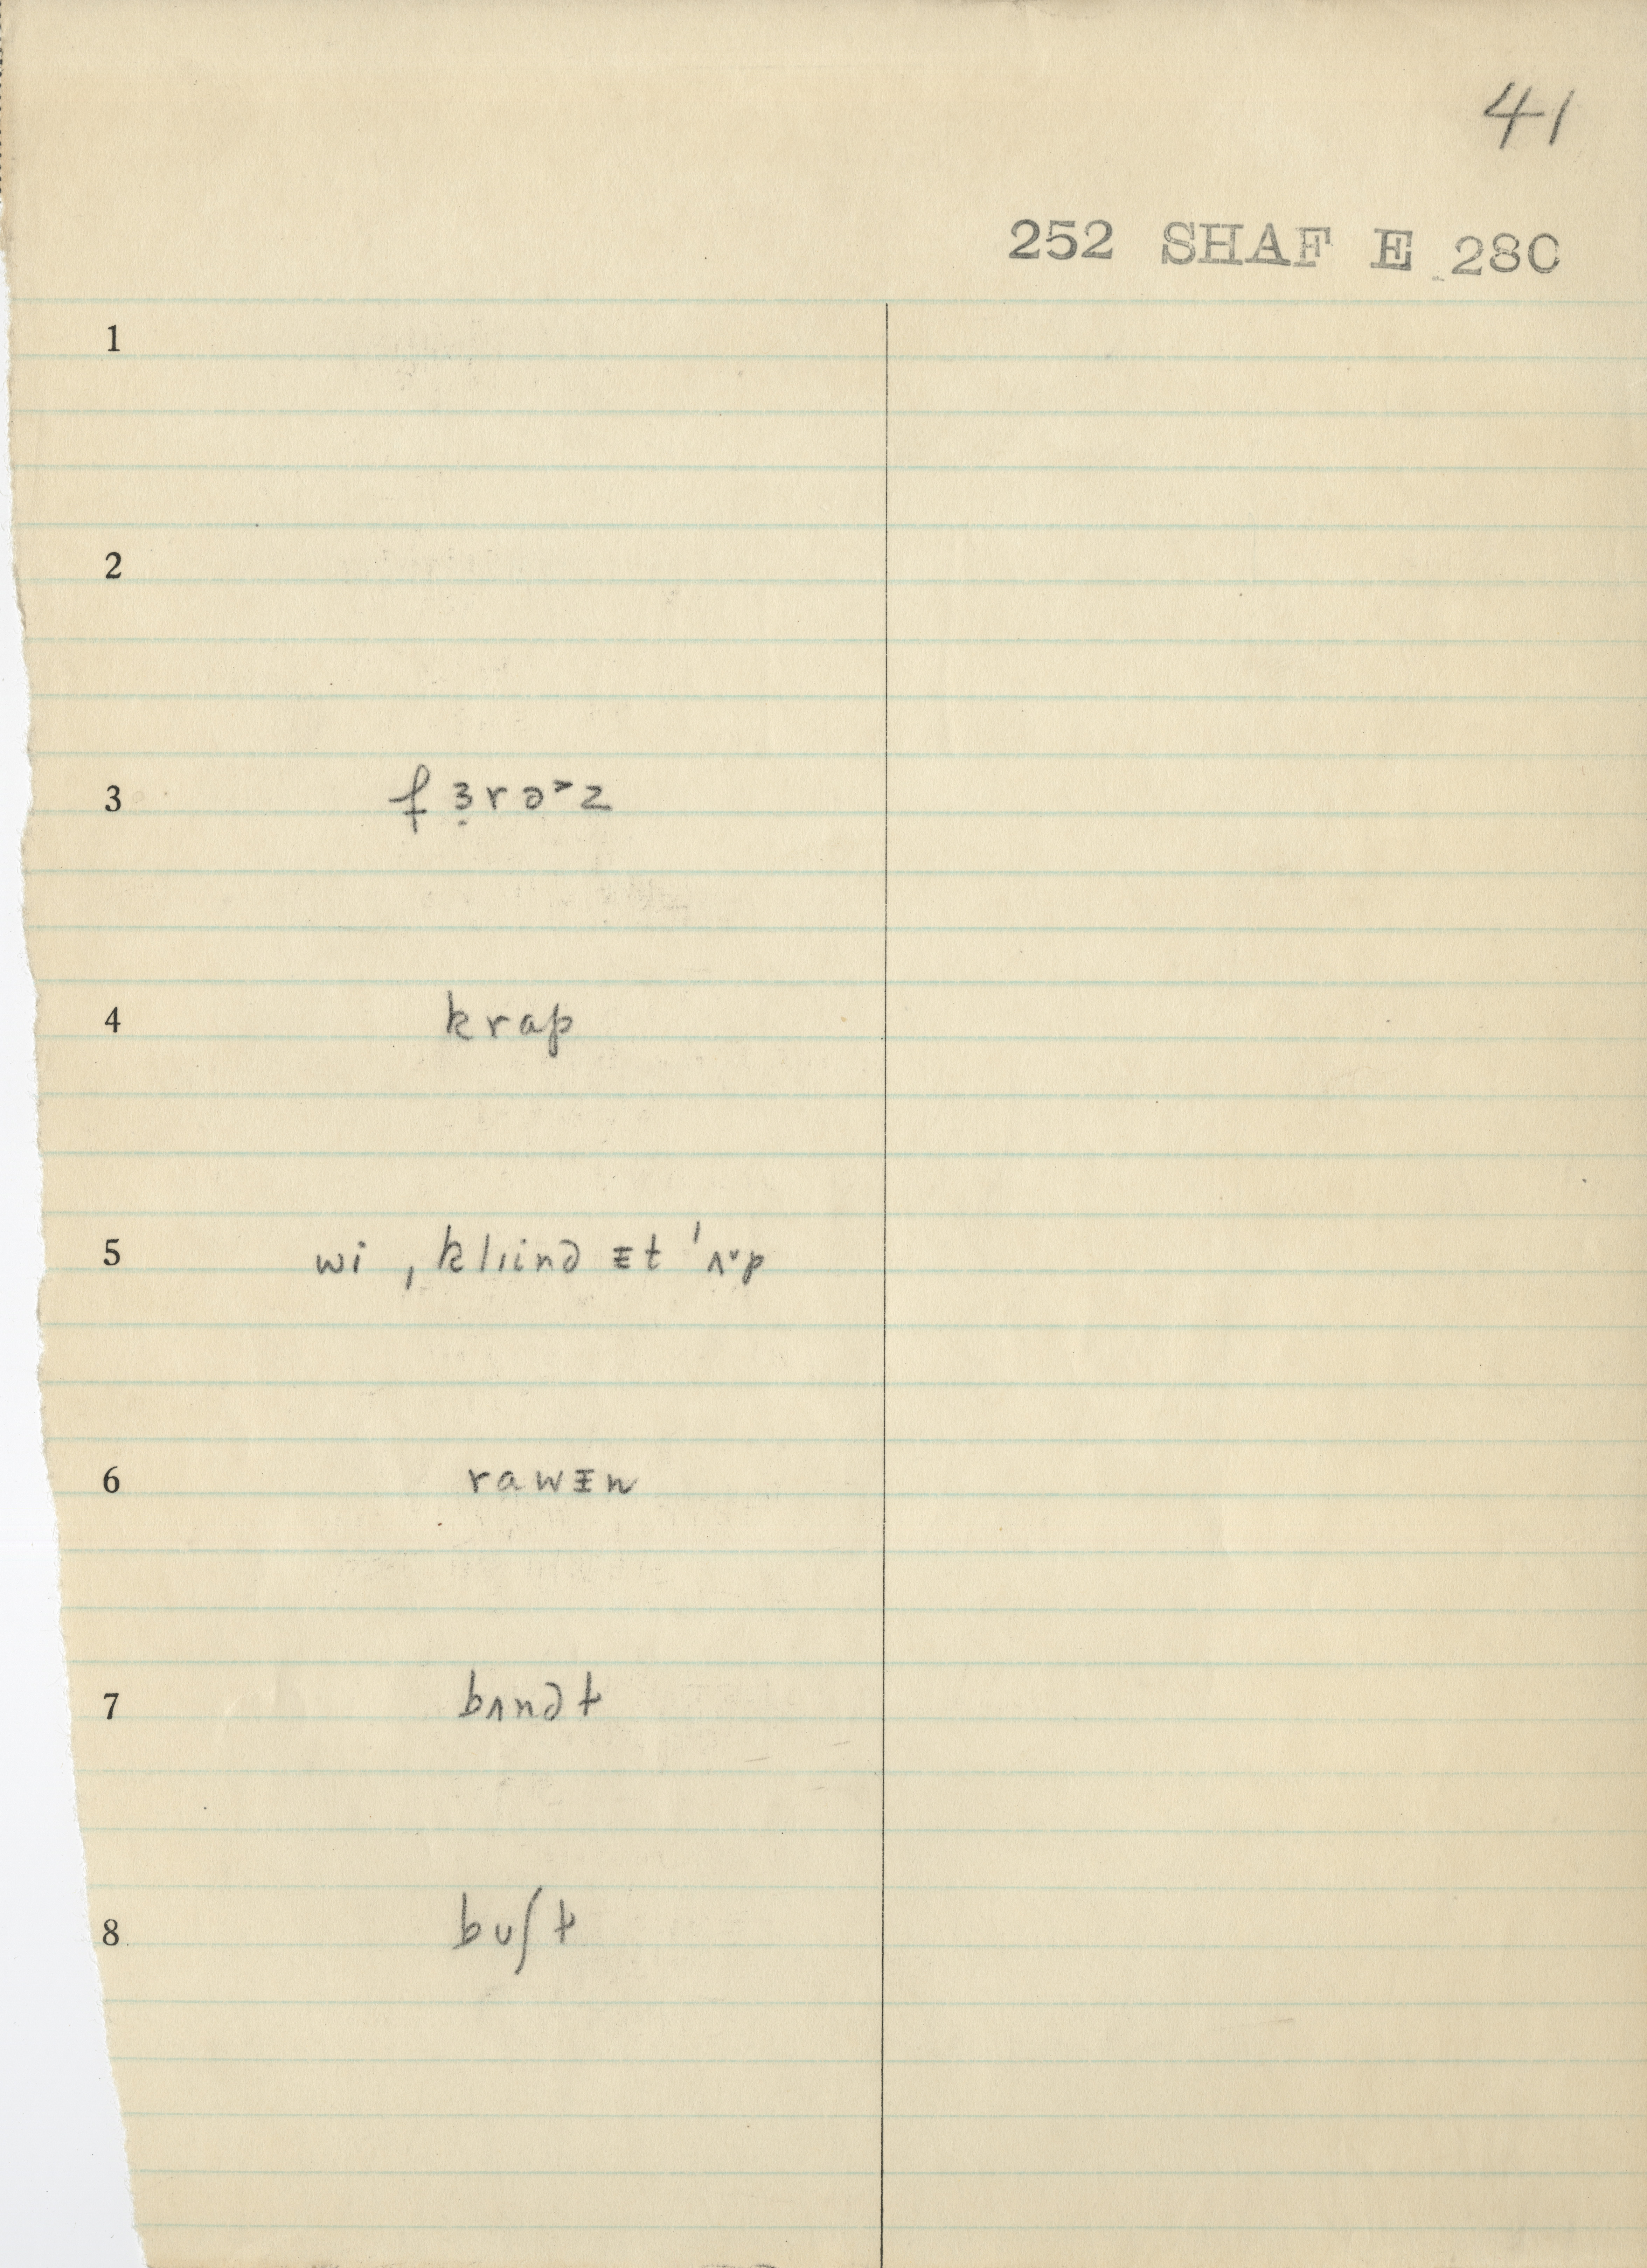 41
252 SHAF E 280
1
2
3 fɜ̣rə˃z
4 krap
5 wi ˌklıinə ᵻt ˈʌ˅p
6 rawᵻn
7 bʌndƚ
8 bʊʃƚ